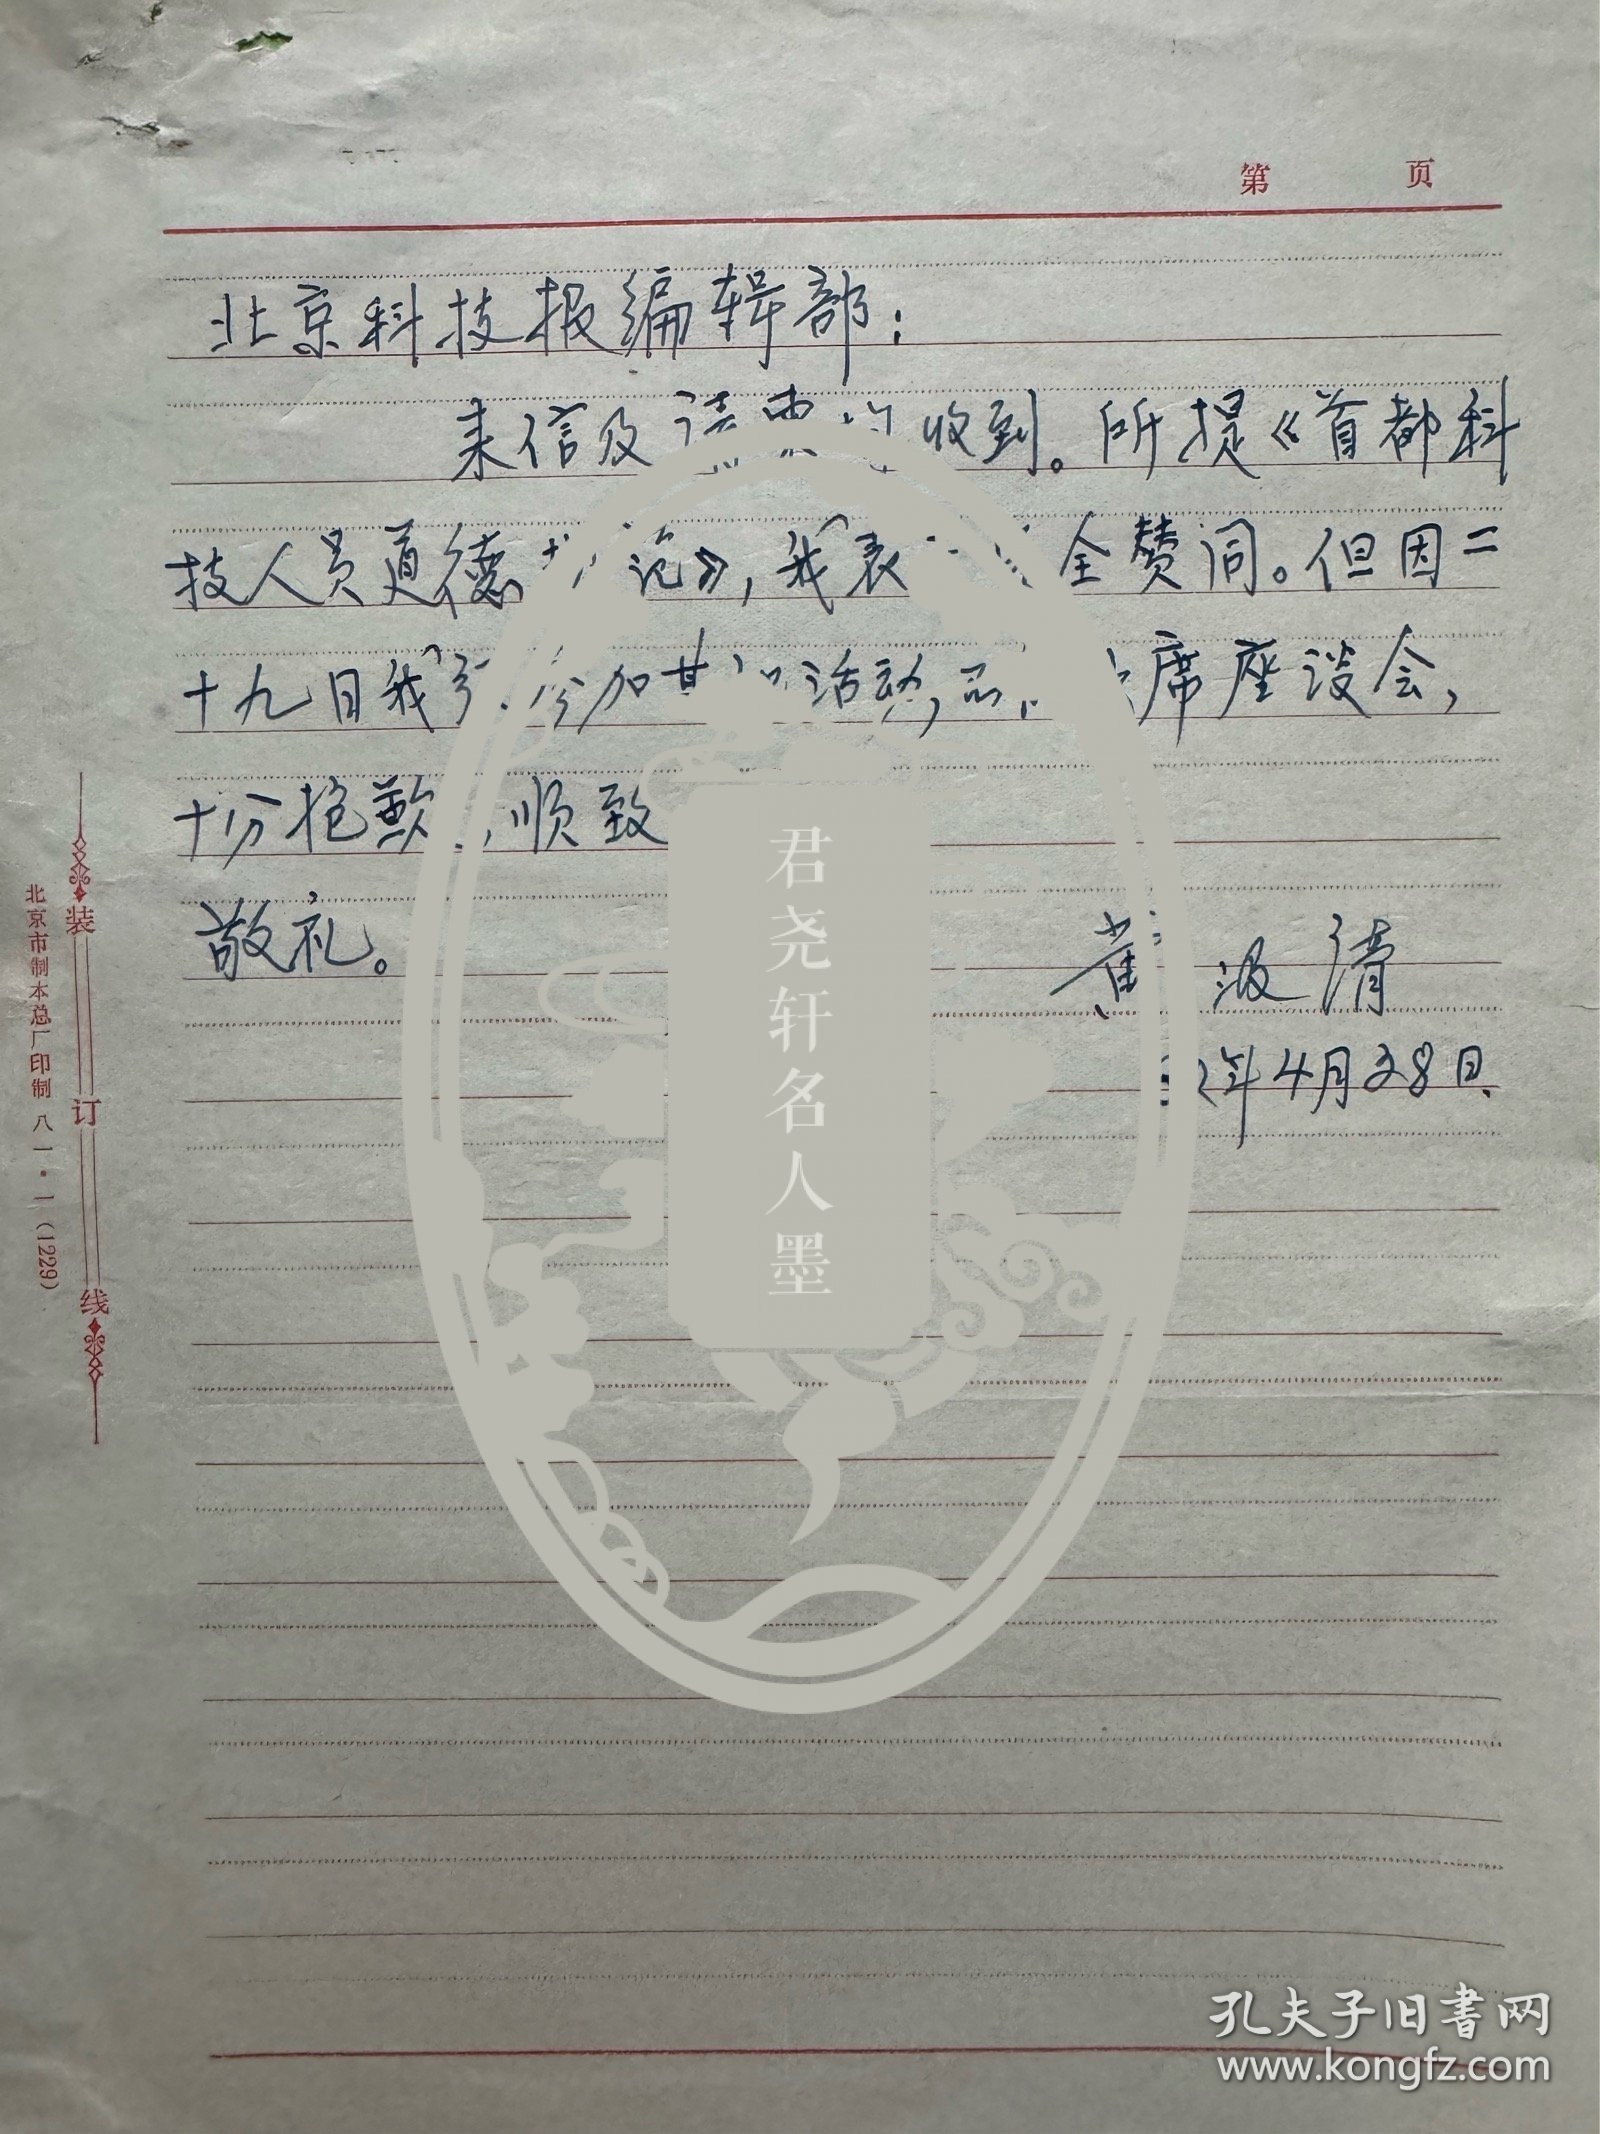 第 页
北京科技报编辑部：
来信及请柬均收到。所提《首都科
技人员道德 记》，我表 全赞同。但因二
十九日我 参加其他活动，不 席座谈会，
十分抱歉，顺致
敬礼。
黄汲清
82年4月28日
装订线
北京市制本总厂印制 八一·一(1229)
君尧轩名人墨
孔夫子旧书网
www.kongfz.com